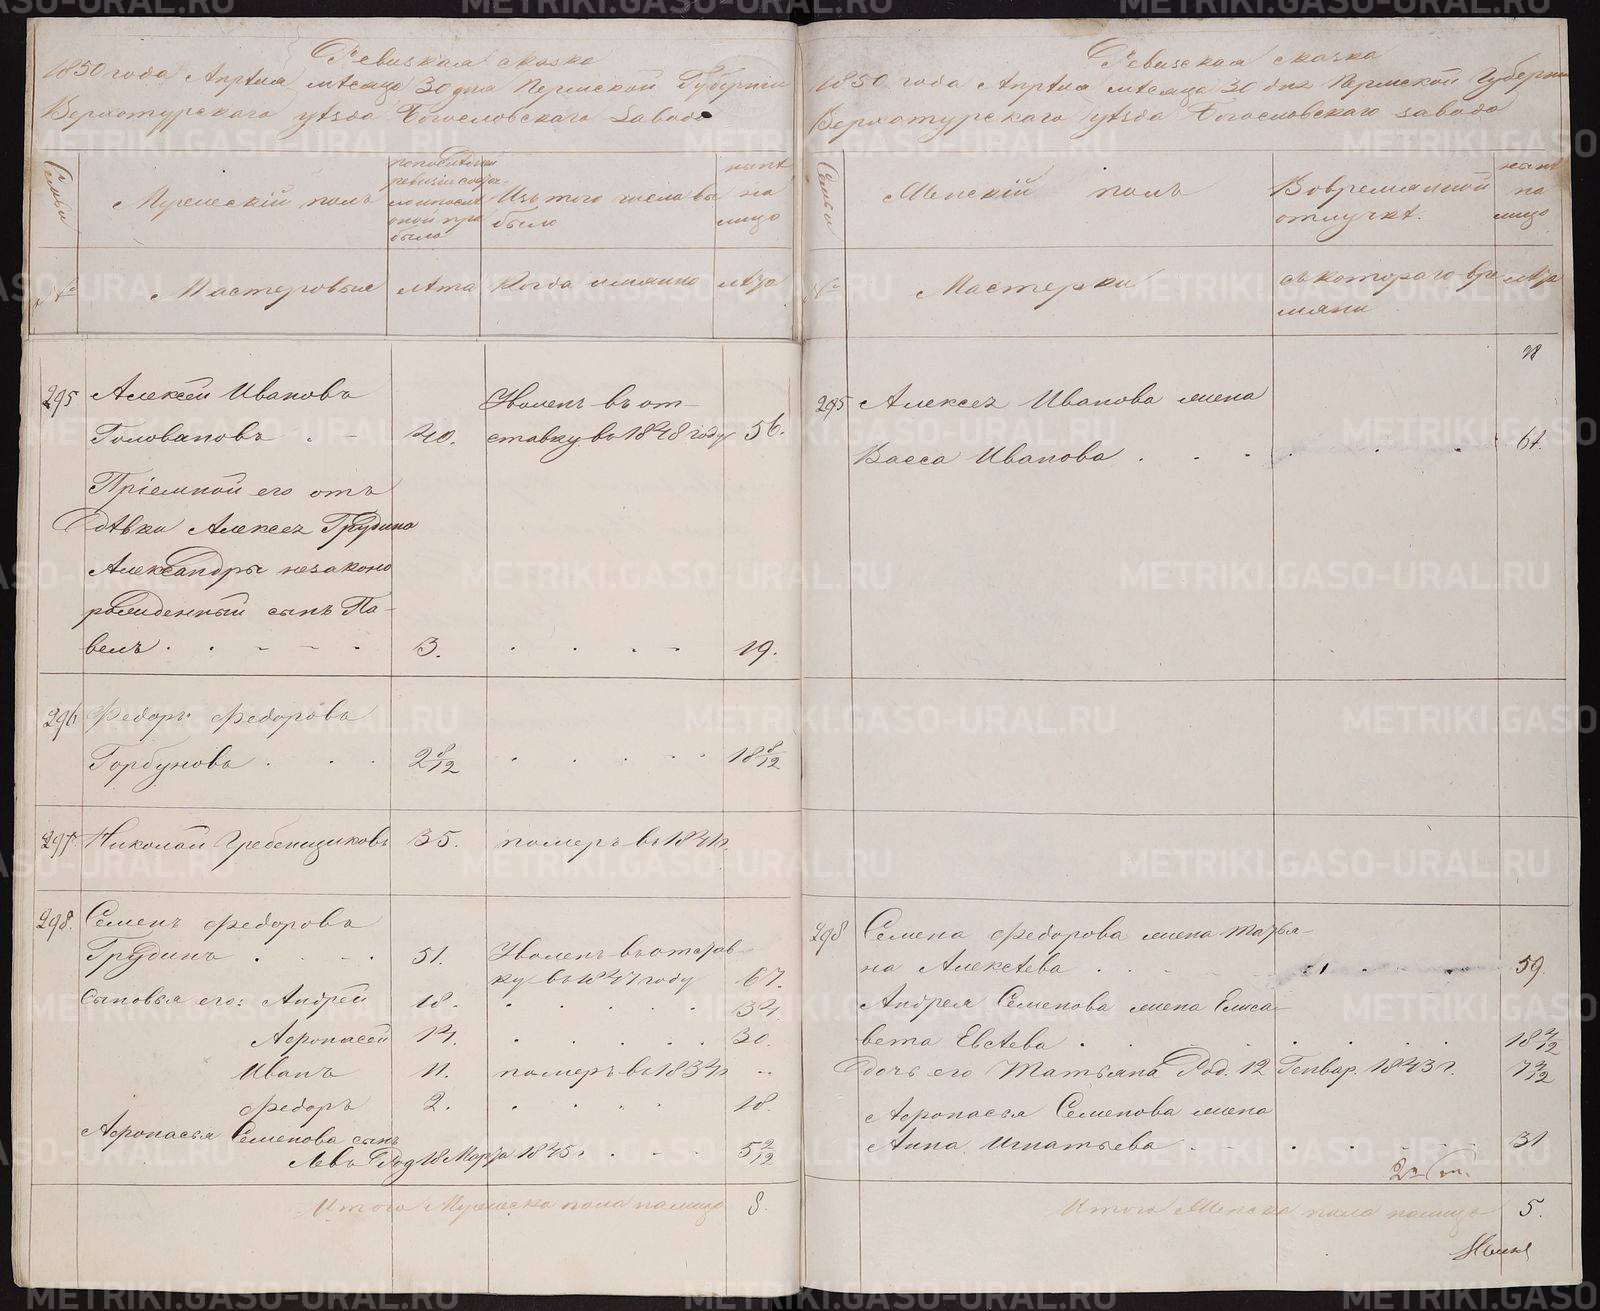 Ревизская сказка
1850 года Апрѣля мѣсяца 30 дня Пермской Губерніи
Верхотурскаго уѣзда Богословскаго завода
Семьи
Мужескій полъ
по последней
ревизіи
Изъ того числа вы
было
нынѣ
на
лицо
№
Мастеровые
лѣта
Когда имянно
лѣта
295
Алексѣй Ивановъ
Головановъ
40.
Уволенъ въ от-
ставку въ 1848 году
56.
Пріемной его отъ
дѣвки Алексея Грудина
Александры незаконо
рожденный сынъ Па-
велъ
3.
19.
296
Федоръ Федоровъ
Горбуновъ
2 8/12
18 8/12
297.
Николай Гребенщиковъ
35.
померъ въ 1841 г.
298.
Семенъ Федоровъ
Грудинъ
51.
Уволенъ въ отстав-
ку въ 1847 году
67.
Сыновья его: Андрей
18.
34.
Афонасей
14.
30.
Иванъ
11.
померъ въ 1834 г.
Федоръ
2.
18.
Афонасья Семенова сынъ
Левъ Род 18 Марта 1845 г.
5 2/12
Итого Мужеска пола налицо
8.
Ревизская сказка
1850 года Апрѣля мѣсяца 30 дня Пермской Губерніи
Верхотурскаго уѣзда Богословскаго завода
Семьи
Женскій полъ
Во временной
отлучкѣ.
нынѣ
на
лицо
№
Мастерки
съ котораго вре
мяни
лѣта
295
Алексея Иванова жена
Васса Иванова
61.
298
Семена Федорова жена Татья-
на Алексѣева
59.
Андрея Семенова жена Елиса-
вета Евсѣева
Дочь его Татьяна Род. 12 Генвар. 1843 г.
Афонасья Семенова жена
Анна Игнатьева
31
Итого Женска пола налицо
5.
METRIKI.GASO-URAL.RU